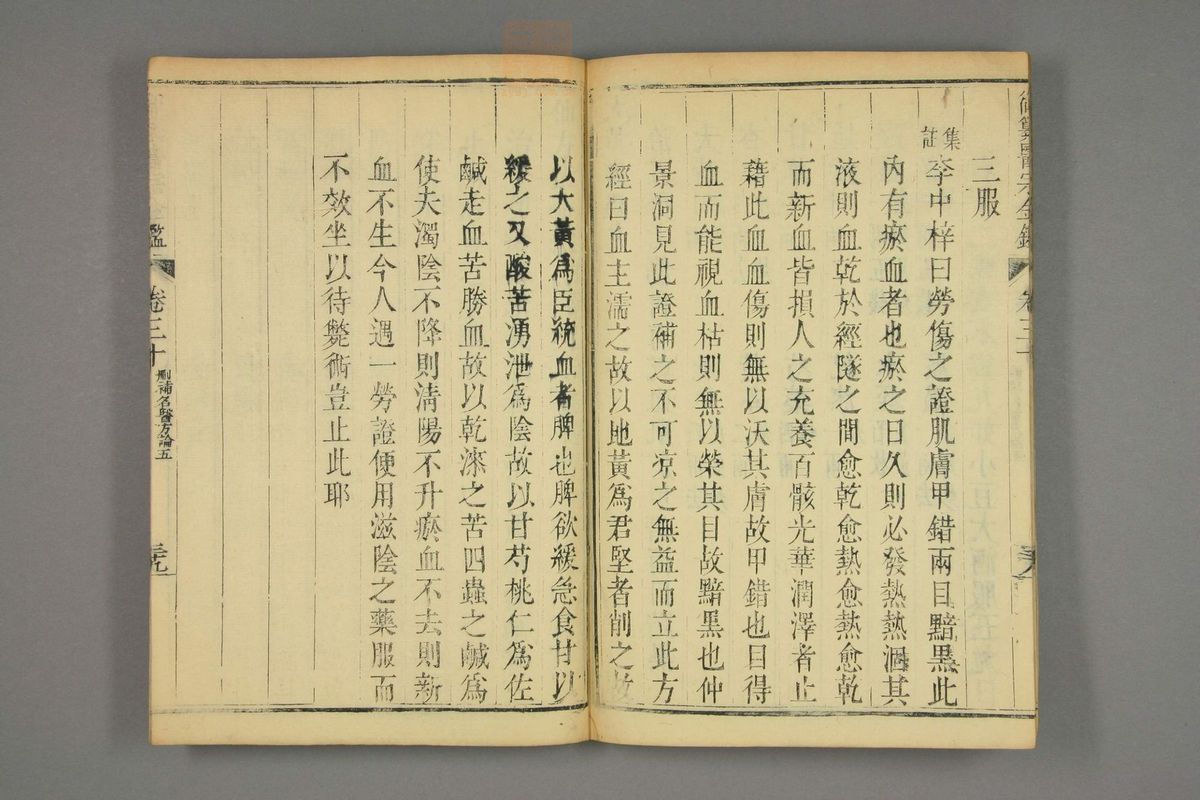 三服
集註
李中梓曰勞傷之證肌膚甲錯兩目黯黑此
內有瘀血者也瘀之日久則必發熱熱涸其
液則血乾於經隧之間愈乾愈熱愈熱愈乾
而新血皆損人之充養百骸光華潤澤者止
藉此血血傷則無以沃其膚故甲錯也目得
血而能視血枯則無以榮其目故黯黑也仲
景洞見此證補之不可凉之無益而立此方
經曰血主濡之故以地黃爲君堅者削之故
以大黃爲臣統血者脾也脾欲緩急食甘以
緩之又酸苦湧泄爲陰故以甘芍桃仁爲佐
鹹走血苦勝血故以乾漆之苦四蟲之鹹爲
使夫濁陰不降則清陽不升瘀血不去則新
血不生今人遇一勞證便用滋陰之藥服而
不效坐以待斃術豈止此耶
卷三十
刪補名醫方論五